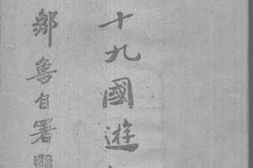 十九國遊
鄒魯自署